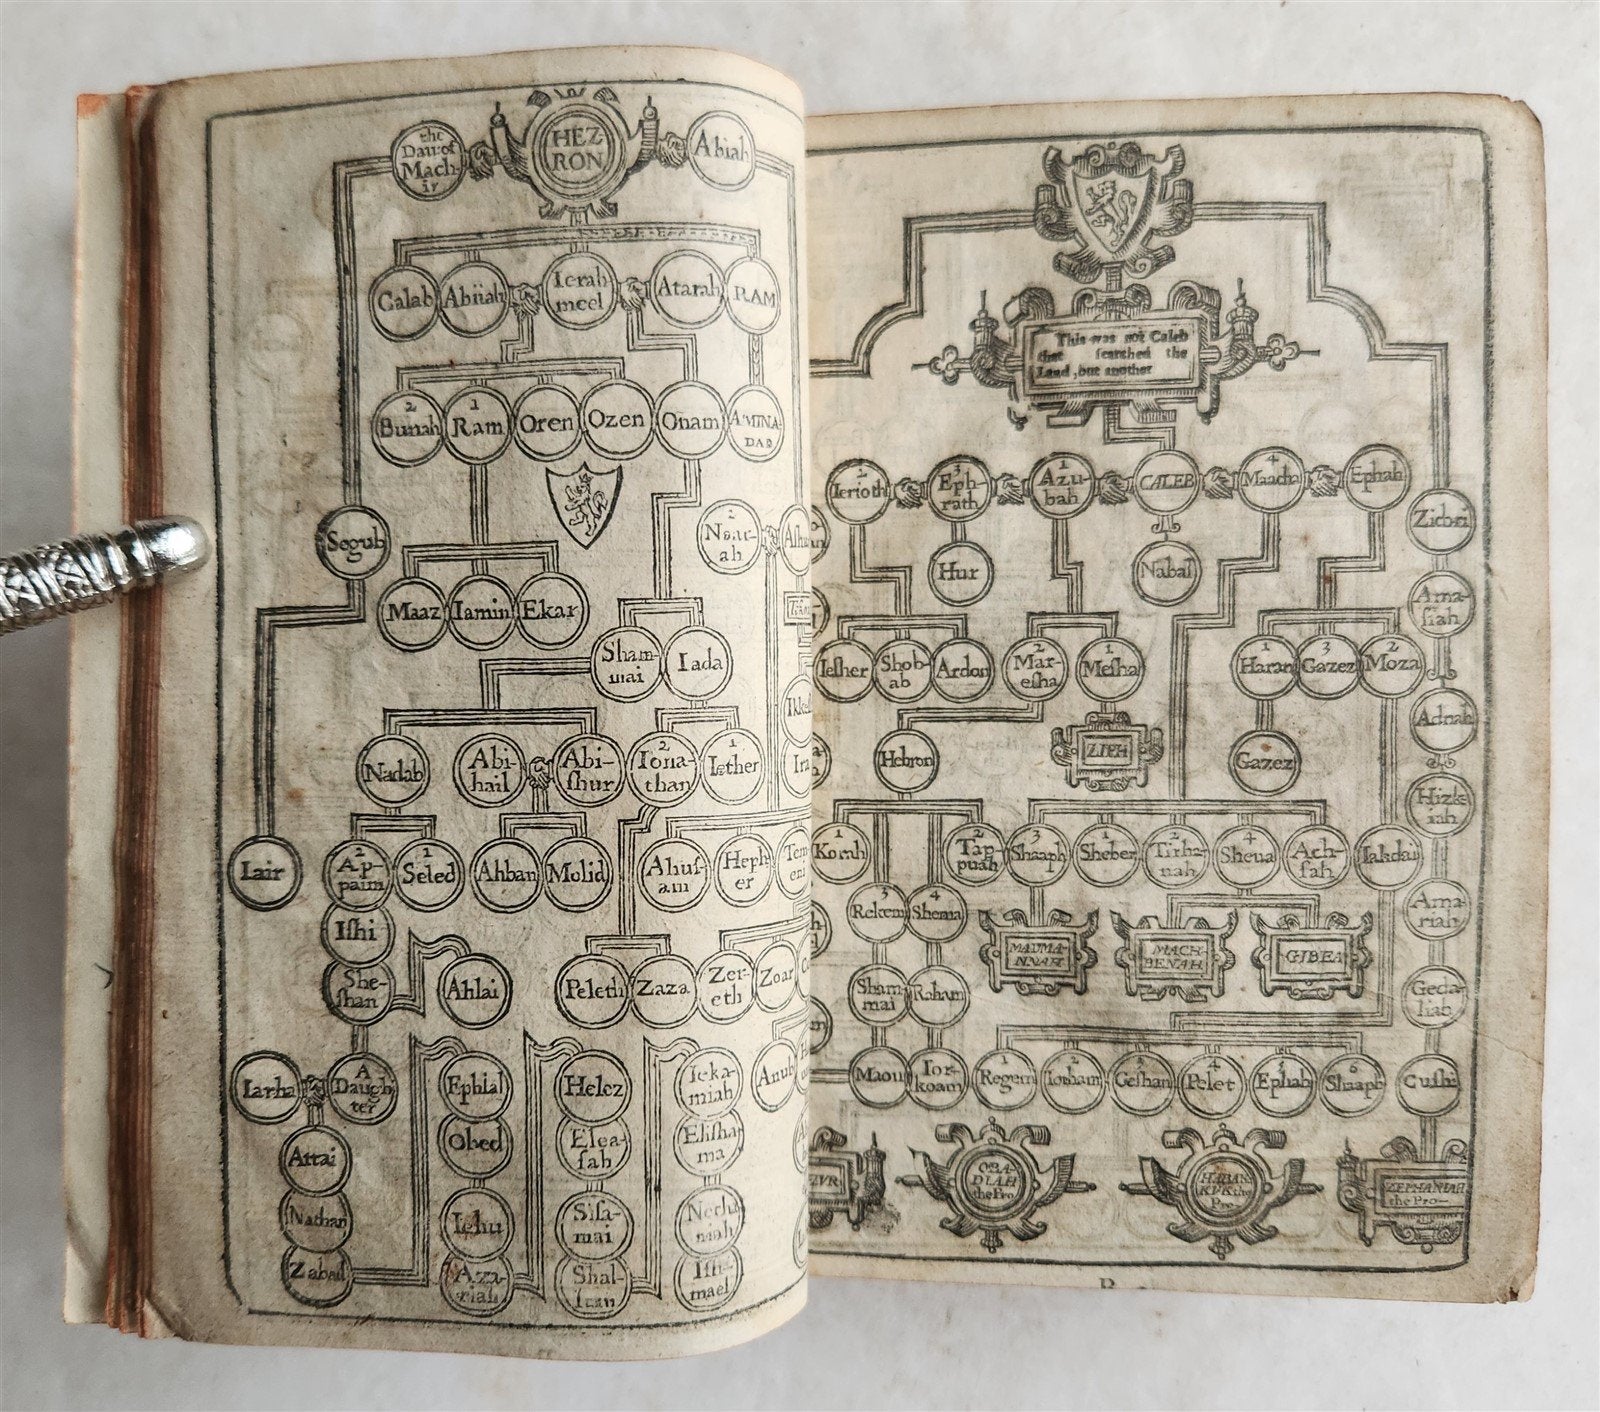 the
Dau: of
Mach-
ir
HEZ
RON
Abiah
Calab
Abiiah
Ierah
meel
Atarah
RAM
2
Bunah
1
Ram
Oren
Ozen
Onam
AMINA-
DAB
Segub
2
Naar-
ah
Maaz
Iamin
Ekar
Sham-
mai
Iada
Nadab
Abi-
hail
Abi-
ſhur
2
Iona-
than
1
Iether
Iair
2
Ap-
paim
1
Seled
Ahban
Molid
Ahuſ-
am
Heph-
er
Tem-
eni
Iſhi
She-
ſhan
Ahlai
Peleth
Zaza
Zer-
eth
Zoar
Iarha
A
Daugh
ter
Ephlal
Helez
Ieka-
miah
Anub
Attai
Obed
Elea-
ſah
Eliſha-
ma
Nathan
Iehu
Siſa-
mai
Neth-
niah
Zabad
Aza-
riah
Shal-
lum
Iſh-
mael
This was not Caleb
that ſearched the
Land, but another
2
Ierioth
3
Eph-
rath
1
Azu-
bah
CALEB
4
Maacha
5
Ephah
Zichri
Hur
Nabal
Ama-
ſiah
Ieſher
Shob-
ab
Ardon
2
Mar-
eſha
1
Meſha
1
Haran
3
Gazez
2
Moza
Adnah
Hebron
ZIPH
Gazez
Hizk-
iah
1
Korah
2
Tap
puah
3
Shaaph
1
Sheber
2
Tirha-
nah
4
Sheua
Ach-
ſah
Iahdai
3
Rekem
4
Shema
Ama-
riah
MADMA-
NNAH
MACH-
BENAH
GIBEA
Sham-
mai
Raham
Geda-
liah
Maou
Ior-
koam
1
Regem
2
Iotham
3
Geſhan
4
Pelet
5
Ephah
6
Shaaph
Cuſhi
OBA-
DIAH
the Pro
HABAK
KVK the
Pro
ZEPHANIAH
the Pro-